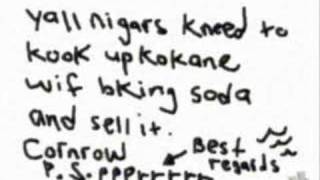 yall nigars kneed to
kook up kokane
wif bking soda
and sell it.
Cornrow
Best
regards
P.S. pperrrrrr